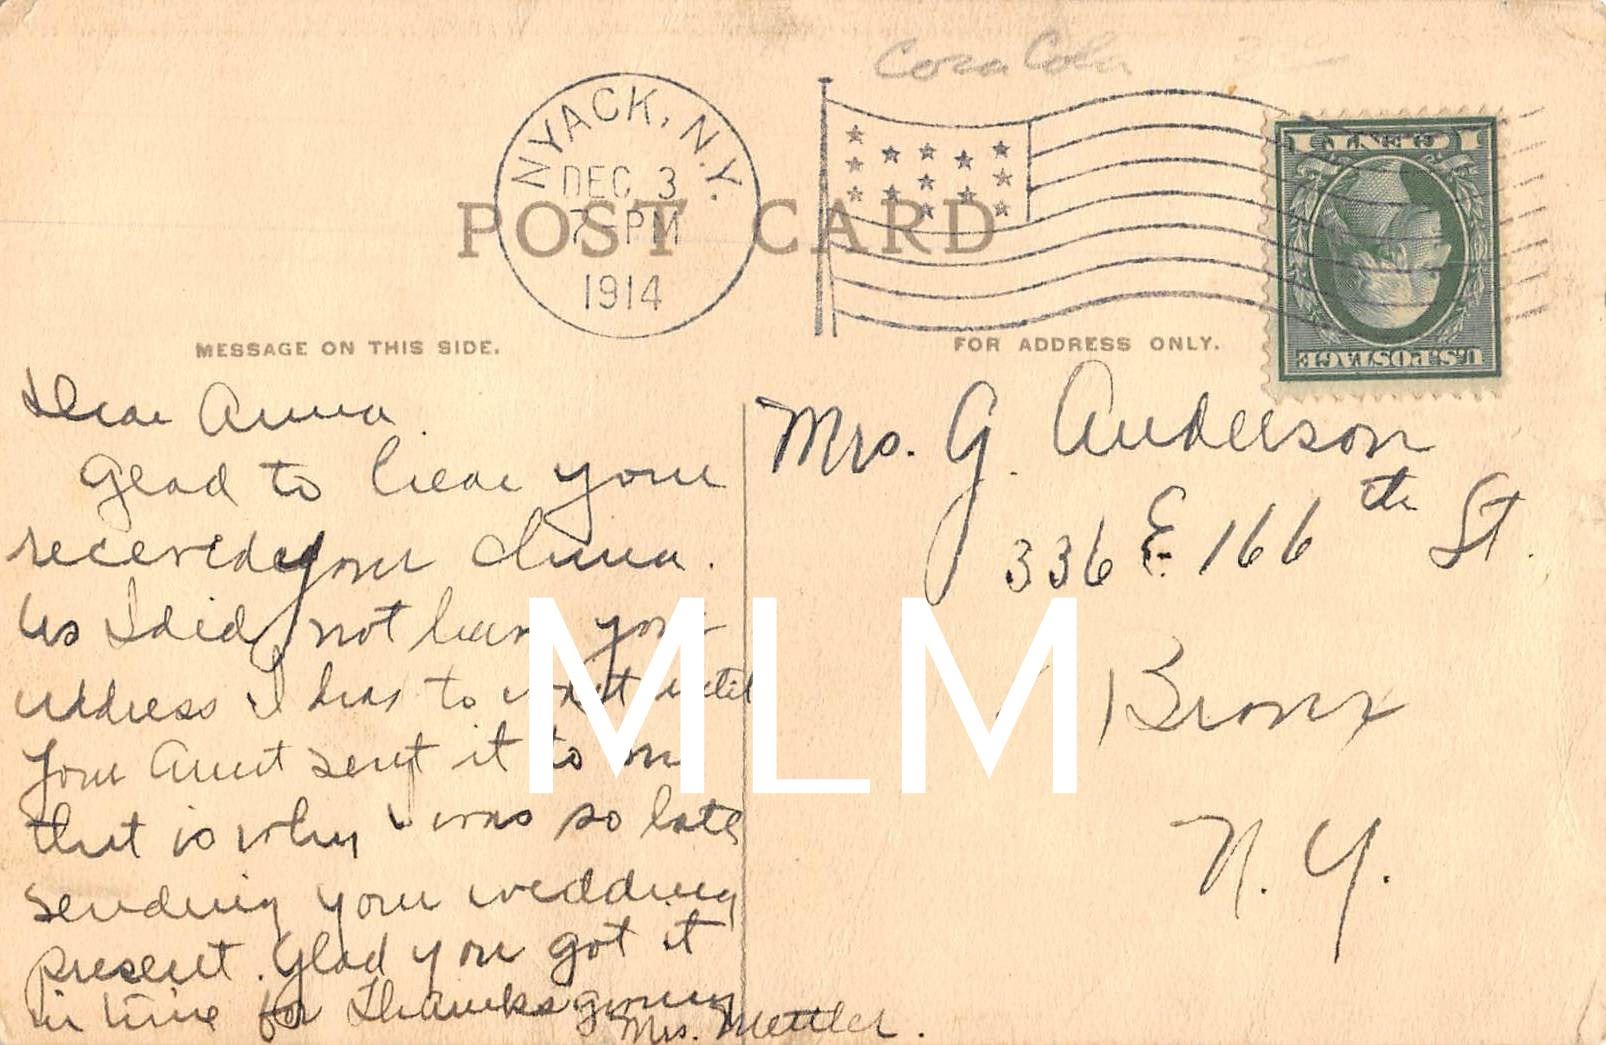 Coca Cola
NYACK, N.Y.
DEC 3
7-PM
1914
1 CENT 1
U.S. POSTAGE
POST CARD
MESSAGE ON THIS SIDE.
FOR ADDRESS ONLY.
Dear Anna.
Glad to hear you
received your china.
As I did not have your
address I had to wait until
your Aunt sent it to me
that is why I was so late
sending your wedding
present. Glad you got it
in time for Thanksgiving
Mrs. Mettler.
Mrs. G. Anderson
336 E. 166th St.
Bronx
N.Y.
MLM